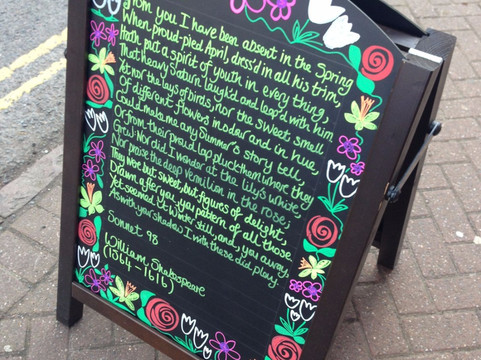 From you I have been absent in the Spring
When proud-pied April, dress'd in all his trim,
Hath put a spirit of youth in every thing,
That heavy Saturn laugh'd and leap'd with him.
Yet nor the lays of birds, nor the sweet smell
Of different flowers in odour and in hue,
Could make me any Summer's story tell,
Or from their proud lap pluck them where they
Grew: Nor did I wonder at the lily's white
Nor praise the deep vermilion in the rose;
They were but sweet, but figures of delight,
Drawn after you, you pattern of all those
Yet seemed it Winter still, and, you away,
As with your shadow I with these did play.
Sonnet 98
William Shakespeare
(1564-1616)